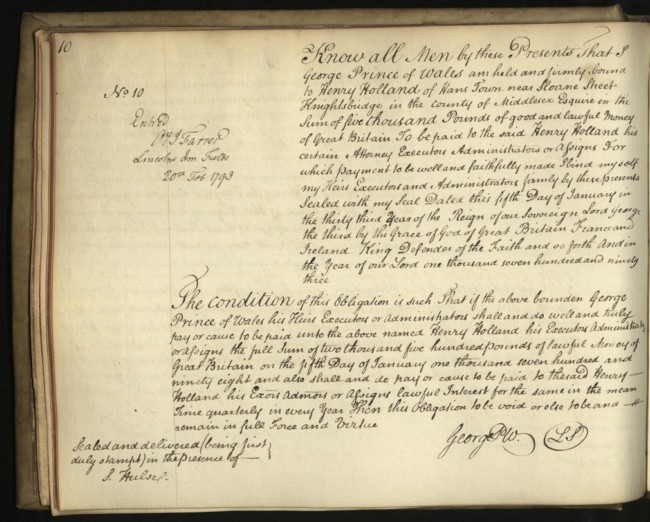 10
No 10
Entred
J Farrer
Lincolns Inn Fields
20th Feb 1793
Know all Men by these Presents That I
George Prince of Wales am held and firmly bound
to Henry Holland of Hans Town near Sloane Street
Knightsbridge in the County of Middlesex Esquire in the
Sum of five thousand Pounds of good and lawful Money
of Great Britain To be paid to the said Henry Holland his
certain Attorney Executors Administrators or Assigns For
which payment to be well and faithfully made I bind myself
my Heirs Executors and Administrators firmly by these presents
Sealed with my Seal Dated this fifth Day of January in
the thirty third Year of the Reign of our Sovereign Lord George
the third by the Grace of God of Great Britain France and
Ireland King Defender of the Faith and so forth And in
the Year of our Lord one thousand seven hundred and ninety
three
The condition of this Obligation is such That if the above bounden George
Prince of Wales his Heirs Executors or Administrators shall and do well and truly
pay or cause to be paid unto the above named Henry Holland his Executors Administrators
or Assigns the full Sum of two thousand five hundred pounds of lawful Money of
Great Britain on the fifth Day of January one thousand seven hundred and
ninety eight and also shall and do pay or cause to be paid to the said Henry
Holland his Exors Admors or Assigns lawful Interest for the same in the mean
Time quarterly in every Year Then this Obligation to be void or else to be and
remain in full Force and Virtue
George P.W. (LS)
Sealed and delivered (being first
duly stampt) in the presence of
S. Hulse